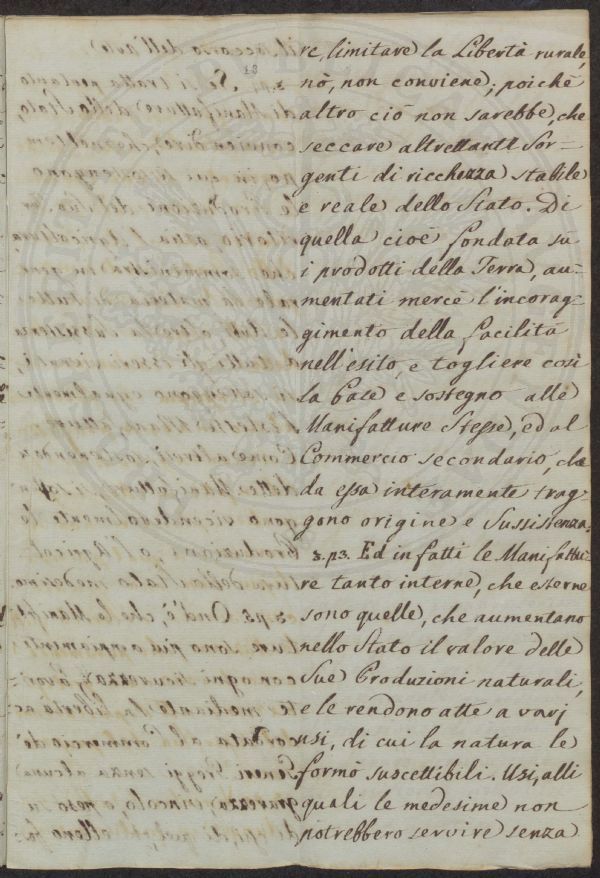 re, limitare la Libertà rurale,
nò, non conviene; poichè
altro ciò non sarebbe, che
seccare altrettante Sor=
genti di ricchezza stabile
e reale dello Stato. Di
quella cioè fondata sù
i prodotti della Terra, au=
mentati mercè l'incorag=
gimento della facilità
nell'esito, e togliere così
la base e sostegno alle
Manifatture Stesse, ed al
Commercio secondario, che
da essa interamente trag=
gono origine e Sussistenza.
3. p3. Ed in fatti le Manifattu=
re tanto interne, che esterne
sono quelle, che aumentano
nello Stato il valore delle
Sue Produzioni naturali,
e le rendono atte a varj
usi, di cui la natura le
formò suscettibili. Usi, alli
quali le medesime non
potrebbero servire senza